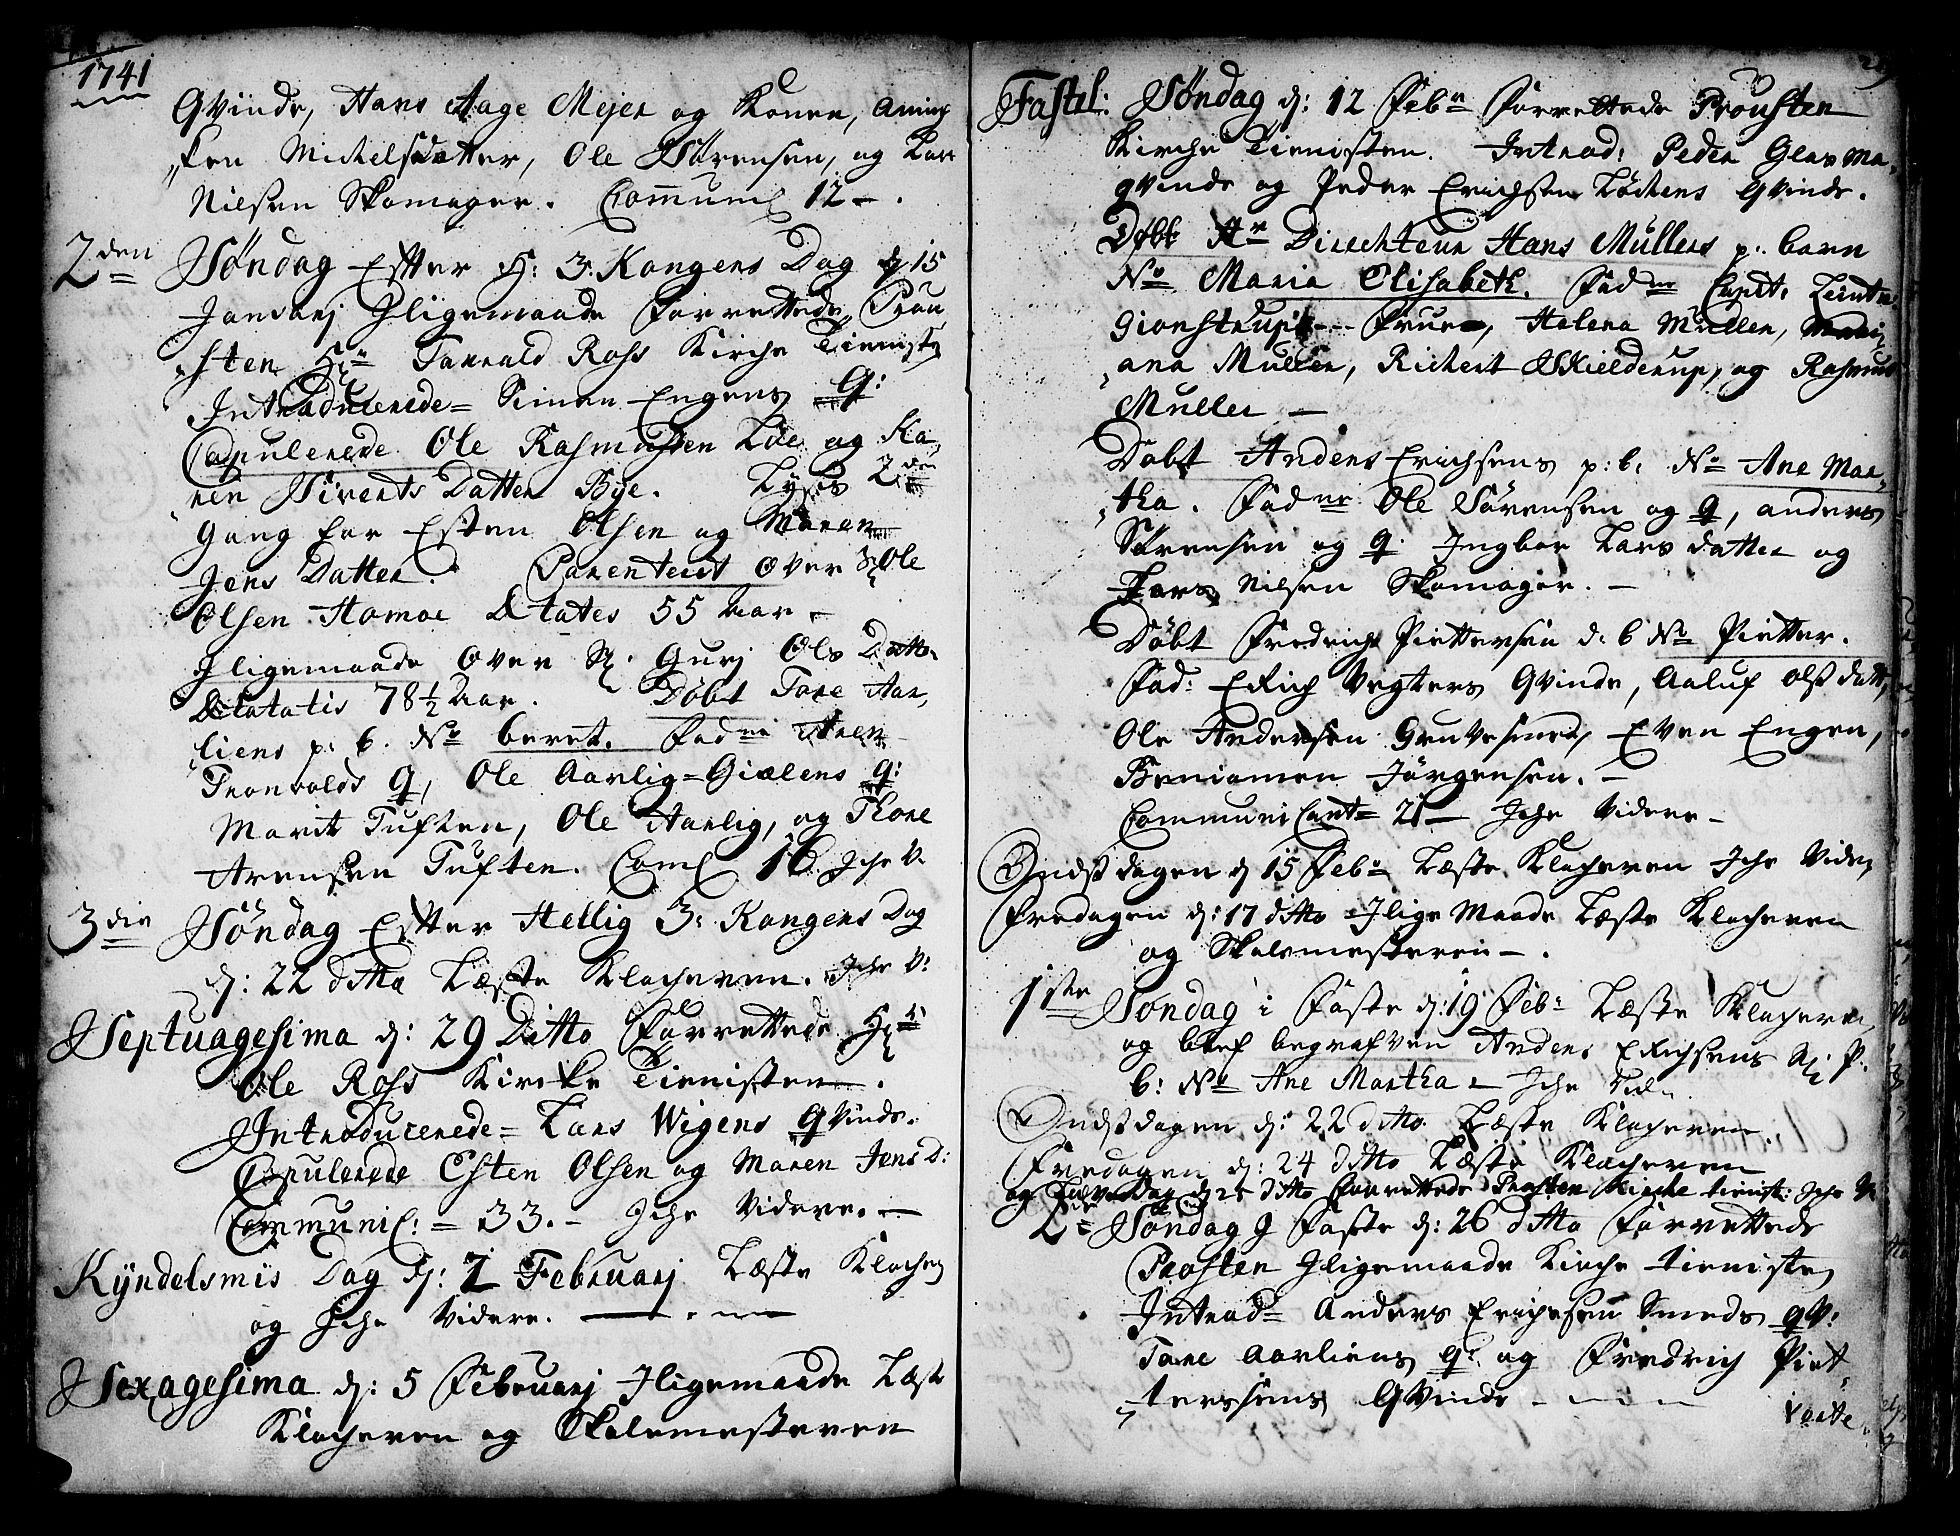 1741
Qvinde, Hans Aage Mejer og Konen, Anniǝ
„ken Michelsdatter, Ole Sörensen, og Lars
Nilsen Skomager. Communs 12 –.
2den Söndag Efter H: 3. Kongers Dag d 15
Januarj Jligemaade Forrettede Prou
„sten Hr Tarvald Ross Kirche Tienisten
Introducerede = Simen Engens Q:
Copulerede Ole Rasmussen Löe og Ka„
ren Siverts Datter Bye. Lyses 2den
Gang for Esten Olsen og Maren
Jens Datter. Parenteret over Sl Ole
Olsen Hamoe Ætates 55 aar –
Jligemaade over Sl. Gurj Ols Datter
Ætatatis 78½ Aar. Döbt Tore Aar„
liens p: b. No beret. Fadne Aren
Tronvolds Q, Ole Aarlig = Giælens q:
Marit Tuften, Ole Aarlig, og Thore
Arensen Tuften. Coms 16 Jche V.
3die Söndag Efter Hellig 3: Kongers Dag
d: 22 ditto Læste Klocheren. Jche V:
Septuagesima d: 29 Ditto Forrettede Hr:
Ole Ross Kircke Tienisten –.
Introducerede = Lars Wigens Qvinde.
Copulerede Esten Olsen og Maren Jens D:
Communic: = 33. – Jche Videre. –
Kyndelsmis Dag d: 2 Februarj Læste Klocher
og Jche Videre. —
Sexagesima d: 5 Februarj Jligemaade Læste
Klocheren og Skolemesteren
Fastel: Söndag d: 12 Febr Forrettede Prousten
Kirche Tienisten. Introd: Peder Glas Ma„
qvinde og Peder Erichsen Löchens Qvinde.
Döbt Hr Directeur Hans Müllers p: barn
No Maria Elisabeth. Fadne Capit: Leint:
Gionstrups Frue, Helena Müller, Mari„
„ana Muller, Richert Skielderup, og Rasmus
Muller —
Döbt Anders Erichsens p: b: No Ane Mar„
„tha. Fadne Ole Sörensen og q, anders
Sörensen og q. Ingbor Lars datter og
Lars Nilsen Skomager. –
Döbt Fredrich Piettersen d: b No Pietter.
Fad: Erich Vegters Qvinde, Aaluf olsdatt,
Ole Andersen Gruvesmed, Even Engen,
Beniamen Jörgensen. –
Communicant = 21 – Jche Videre –
Ondsdagen d 15 Febr Læste Klocheren Jche Vider
Fredagen d: 17 ditto Jlige Maade Læste Klocheren
og Skolemesteren –.
1ste Söndag i Faste d: 19 Febr Læste Klocheren
og blef begrafven Anders Erichsens Sl: P.
b: No Ane Martha – Jche Vid„
Ondsdagen d: 22 ditto Læste Klocheren.
Fredagen d: 24 ditto Læste Klocheren
og Löverdag d 25 ditto forrettede Prosten Kirche tienist: Jche V:
2de Söndag J Faste d: 26 ditto Forrettede
Prosten Jligemaade Kirche tienisten
Introd = Anders Erichsen Smeds qv:
Tore Aarliens q: og Fredrich Piet„
„terssens Qvinde –